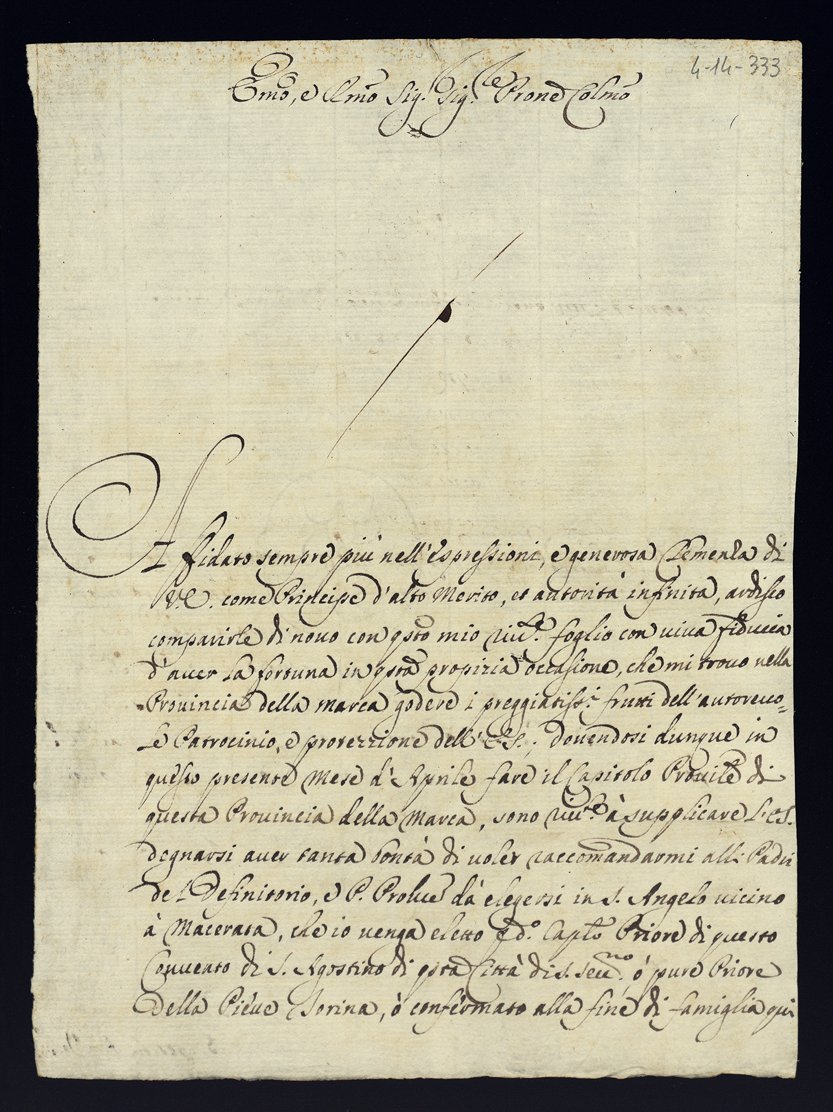 4-14-333
Emo, e Rmo Sig.r Sig.r Prone Colmo
Affidato sempre più nell'espressioni, e generosa Clemenza di
V.E. come Principe d'alto Merito, et autorità infinita, ardisco
comparirle di novo con qsto mio foglio con viva fiducia
d'aver la fortuna in qsta propizia occasione, che mi trovo nella
Provincia della Marca godere i preggiatiss.i frutti dell'autorevo=
le Patrocinio, e protezzione dell'E.S.. dovendosi dunque in
questo presente Mese d'Aprile fare il Capitolo Provile di
questa Provincia della Marca, sono à supplicare L'E.S.
degnarsi aver tanta bontà di voler raccomandarmi alli Padri
del Definitorio, e P. da elegersi in S. Angelo vicino
à Macerata, che io venga eletto Caplo Priore di questo
Convento di S. Agostino di qsta Città di S. Sev.no, ò pure Priore
della Pieve Torina, ò confermato alla fine di famiglia qui